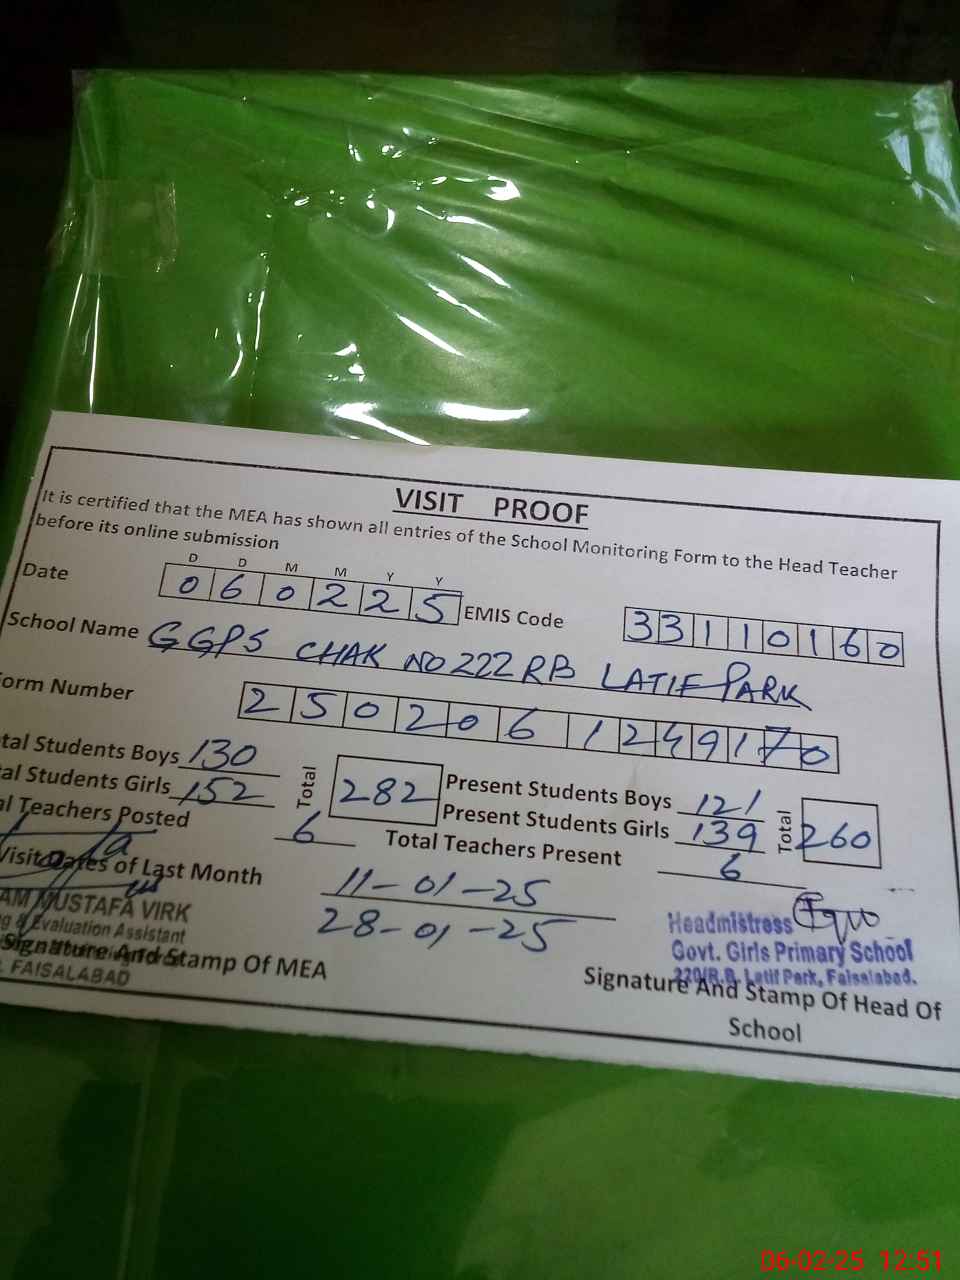 VISIT PROOF
It is certified that the MEA has shown all entries of the School Monitoring Form to the Head Teacher
before its online submission
D D M M Y Y
Date 0 6 0 2 2 5 EMIS Code 3 3 1 1 0 1 6 0
School Name GGPS CHAK NO 222 RB LATIF PARK
orm Number 2 5 0 2 0 6 1 2 4 9 1 7 0
tal Students Boys 130 Total 282 Present Students Boys 121 Total 260
al Students Girls 152 Present Students Girls 139
l Teachers Posted 6 Total Teachers Present 6
Visit Dates of Last Month 11-01-25
28-01-25
AM MUSTAFA VIRK
g & Evaluation Assistant
FAISALABAD
Signature And Stamp Of MEA
Headmistress
Govt. Girls Primary School
Latif Park, Faisalabad.
Signature And Stamp Of Head Of
School
06-02-25 12:51